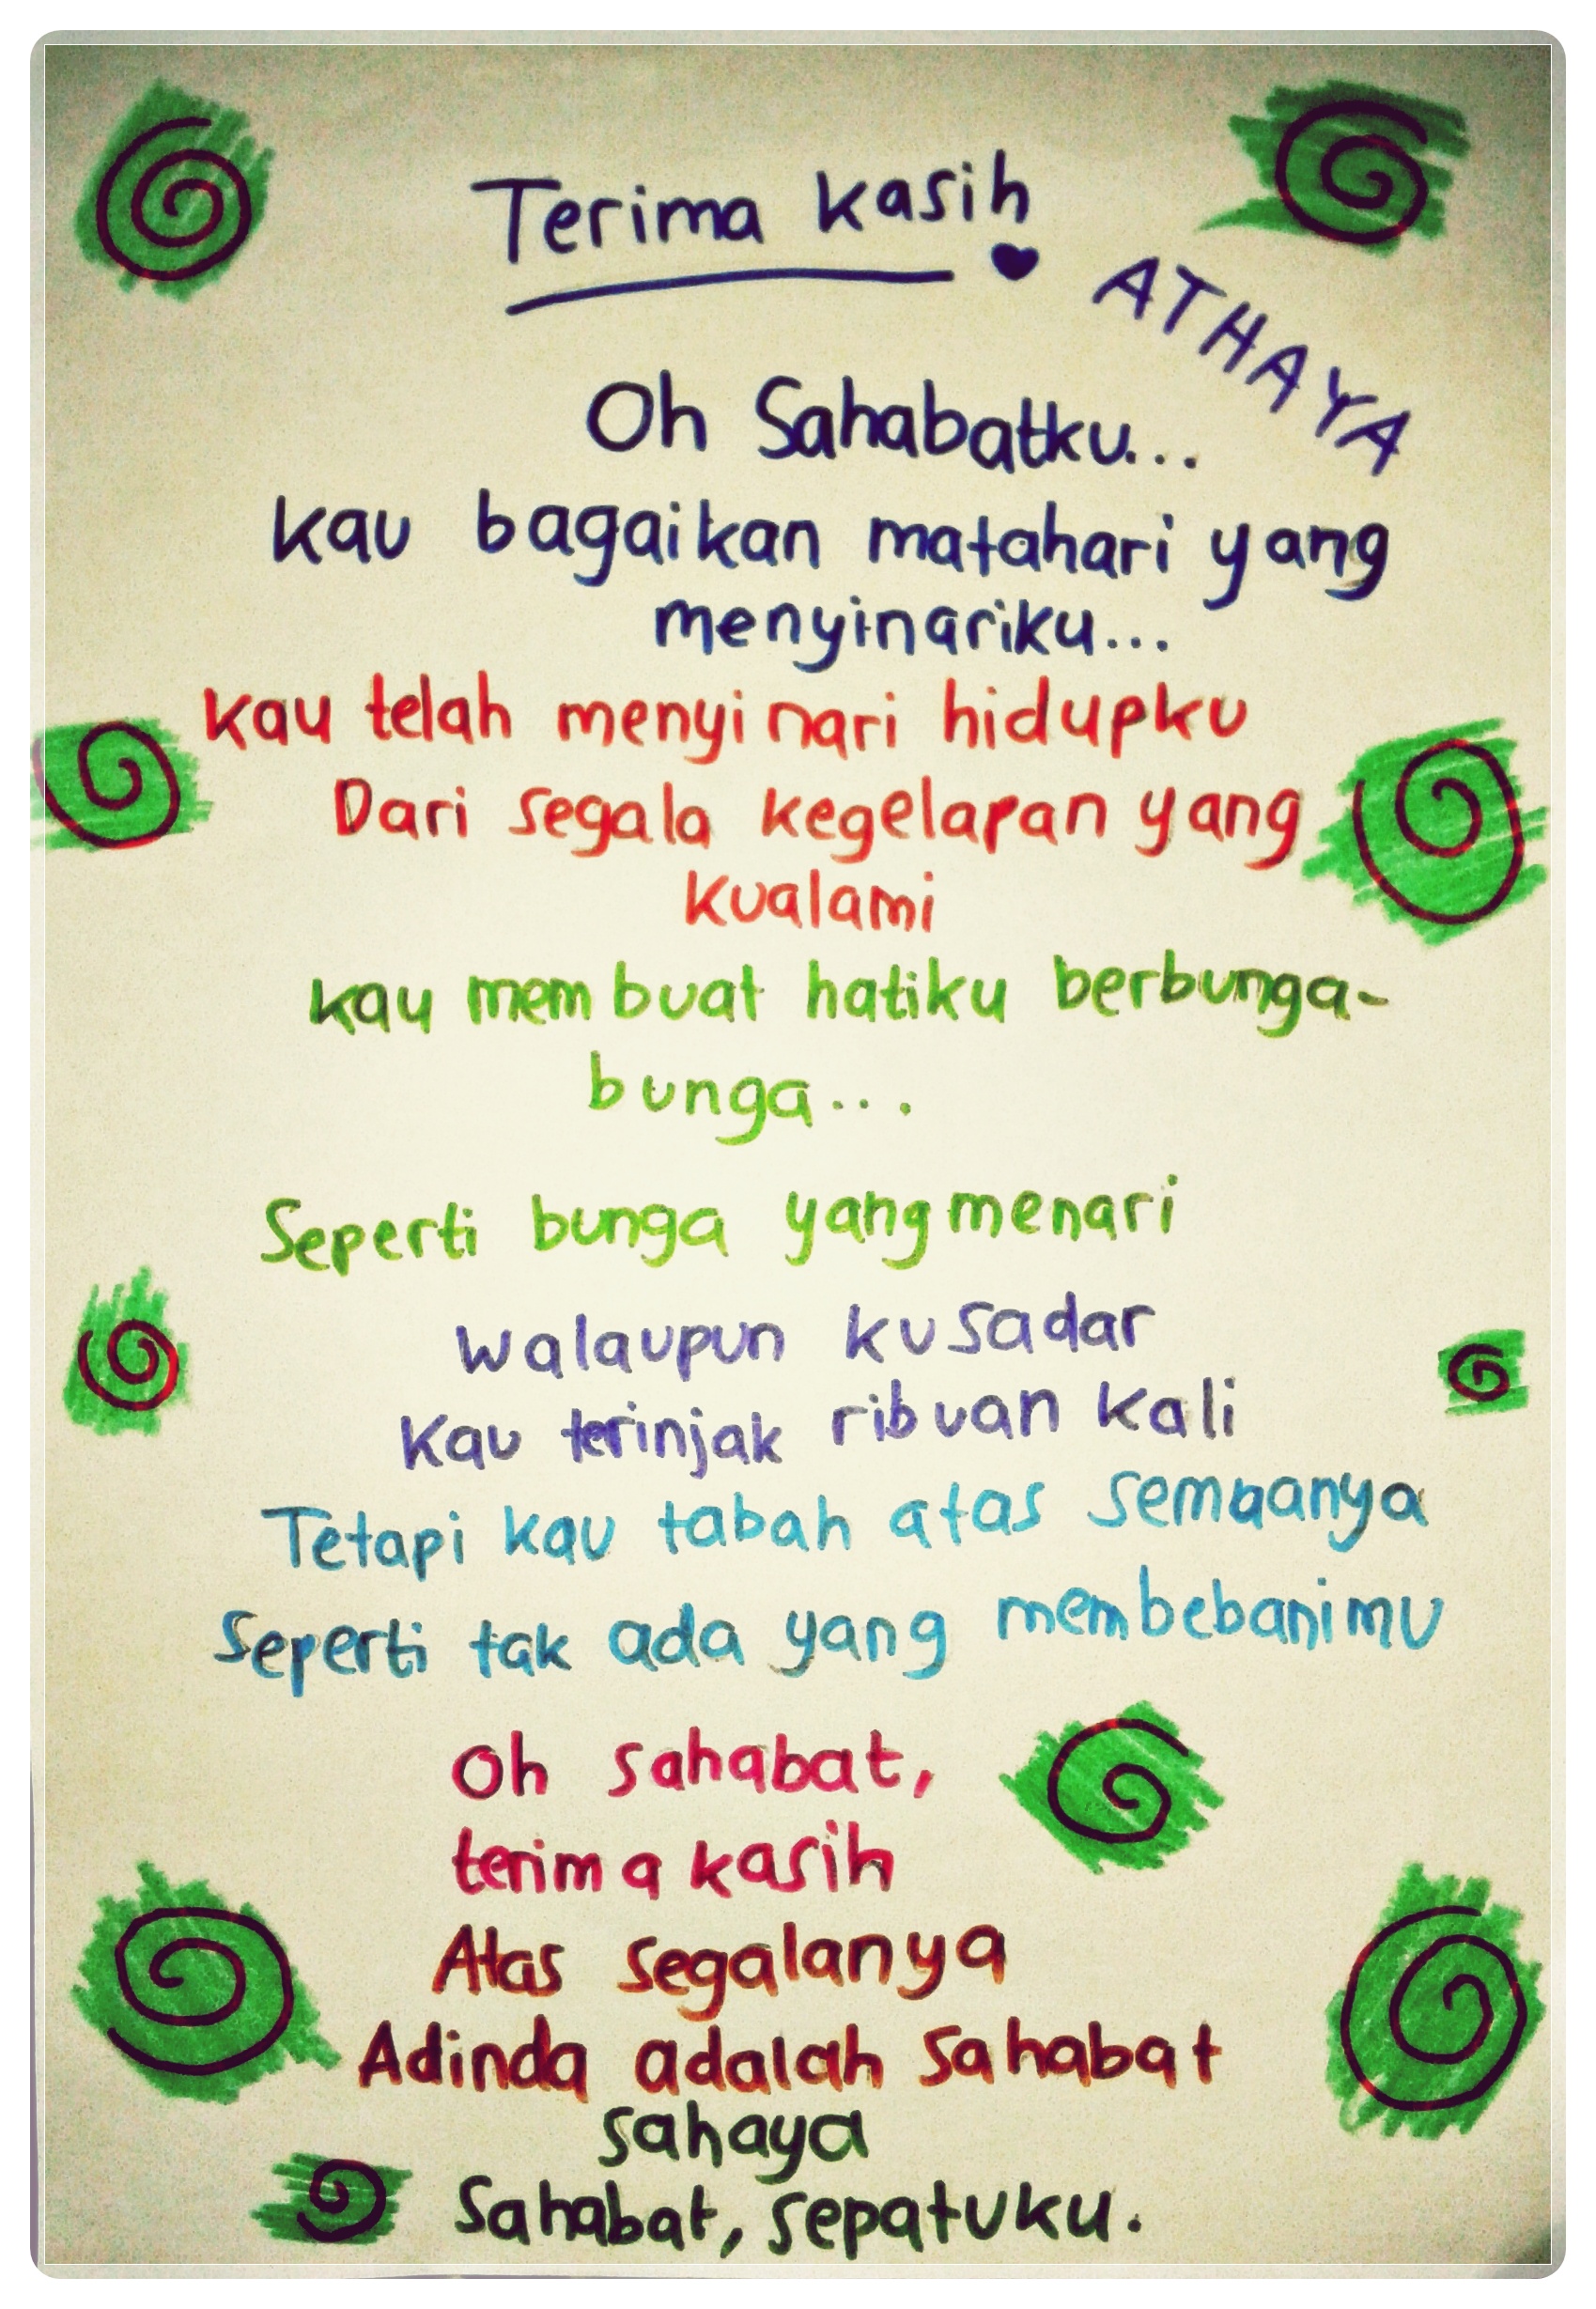 Terima kasih
ATHAYA
Oh Sahabatku...
Kau bagaikan matahari yang
menyinariku...
Kau telah menyinari hidupku
Dari segala kegelapan yang
Kualami
Kau membuat hatiku berbunga-
bunga...
Seperti bunga yang menari
Walaupun kusadar
Kau terinjak ribuan kali
Tetapi kau tabah atas semuanya
Seperti tak ada yang membebanimu
Oh Sahabat,
terima kasih
Atas Segalanya
Adinda adalah Sahabat
Sahaya
Sahabat, Sepatuku.